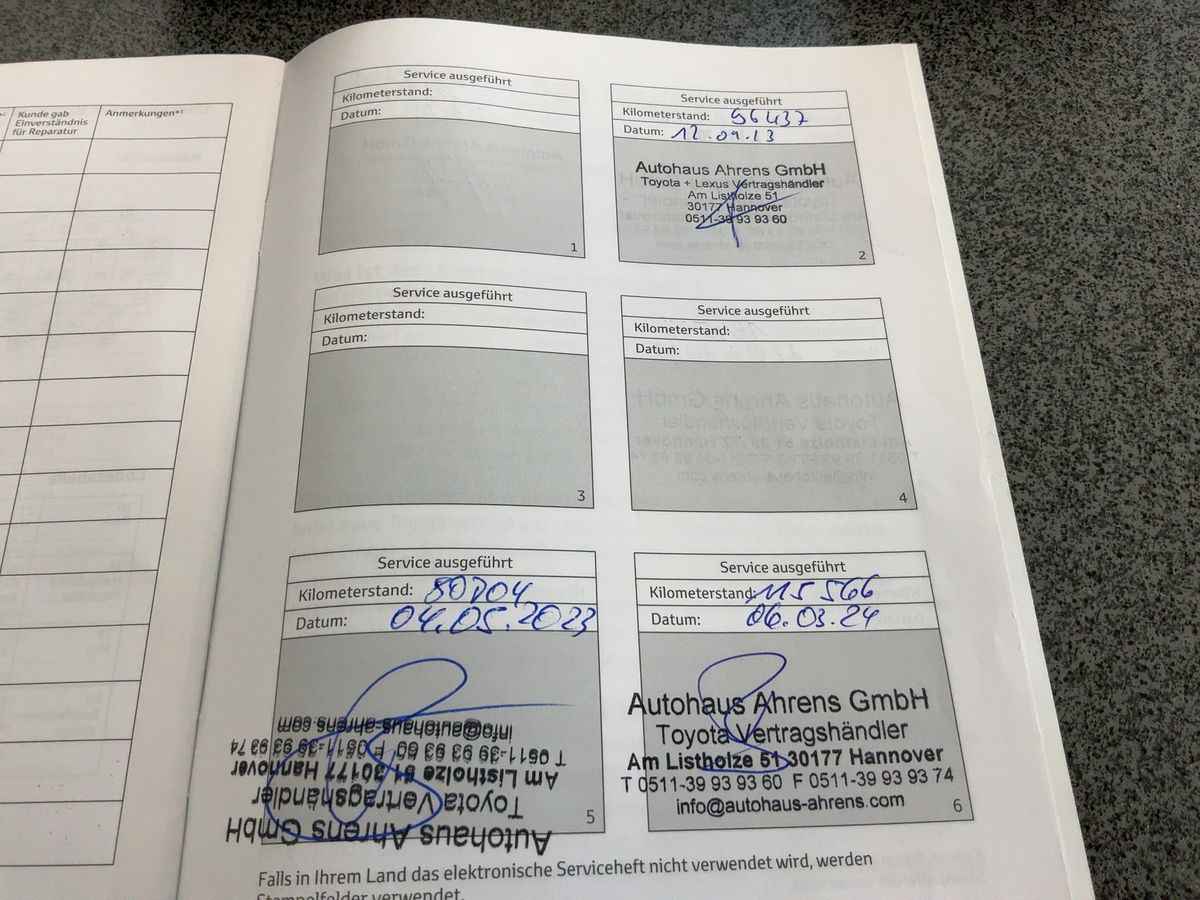 Kunde gab
Einverständnis
für Reparatur
Anmerkungen*¹
Service ausgeführt
Kilometerstand:
Datum:
1
Service ausgeführt
Kilometerstand: 96437
Datum: 12.09.13
Autohaus Ahrens GmbH
Toyota + Lexus Vertragshändler
Am Listholze 51
30177 Hannover
0511-39 93 93 60
2
Service ausgeführt
Kilometerstand:
Datum:
3
Service ausgeführt
Kilometerstand:
Datum:
4
Service ausgeführt
Kilometerstand: 80804
Datum: 04.05.2023
Autohaus Ahrens GmbH
Toyota Vertragshändler
Am Listholze 51 30177 Hannover
T 0511-39 93 93 60 F 0511-39 93 93 74
info@autohaus-ahrens.com
5
Service ausgeführt
Kilometerstand: 115566
Datum: 06.03.24
Autohaus Ahrens GmbH
Toyota Vertragshändler
Am Listholze 51 30177 Hannover
T 0511-39 93 93 60 F 0511-39 93 93 74
info@autohaus-ahrens.com
6
Falls in Ihrem Land das elektronische Serviceheft nicht verwendet wird, werden
Stempelfelder verwendet.